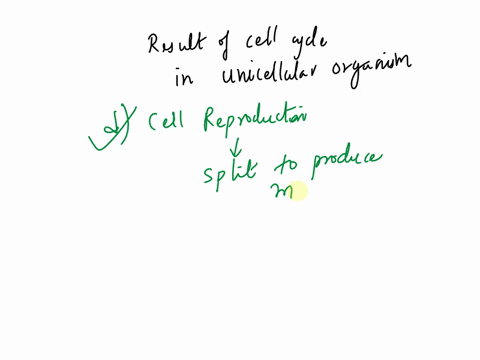 Result of cell cycle
in unicellular organism
d) Cell Reproduction
↓
split to produce
m